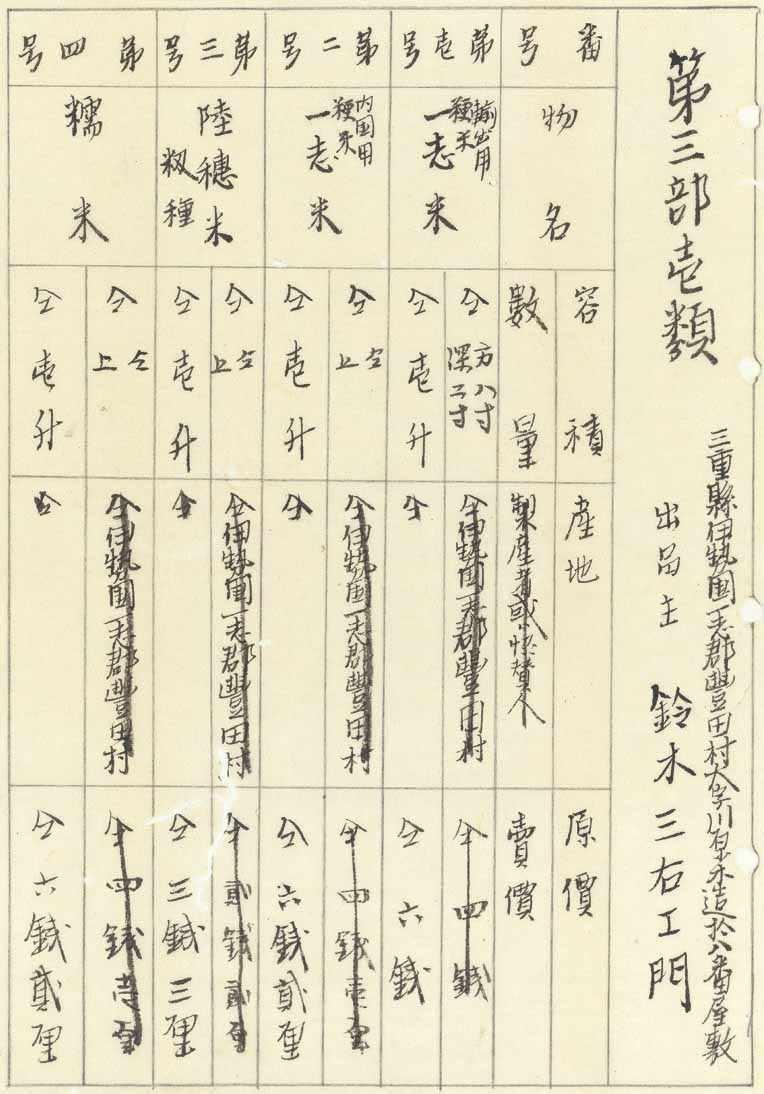 第三部壱類
三重縣伊勢国一志郡豐田村大字川原木造拾八番屋敷
出品主 鈴木三右エ門
番号
物名
容積
数量
産地
製産者或ハ
原價
賣價
第壱号
輸出用
粳米
一志米
仝 方八寸
深二寸
仝壱升
仝伊勢国一志郡豐田村
仝
仝四銭
仝六銭
第二号
内国用
粳米
一志米
仝 仝上
仝壱升
仝伊勢国一志郡豐田村
仝
仝四銭壱厘
仝六銭貳厘
第三号
陸穂米
籾種
仝 仝上
仝壱升
仝伊勢国一志郡豐田村
仝
仝貳銭貳厘
仝三銭三厘
第四号
糯米
仝 仝上
仝壱升
仝伊勢国一志郡豐田村
仝
仝四銭壱厘
仝六銭貳厘